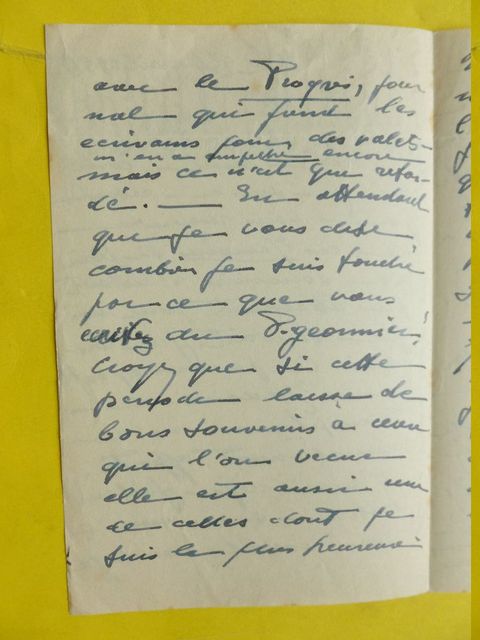 avec le Progrès, jour
nal qui prend les
écrivains pour des valets -
m'en a empêché encore
mais ce n'est que retar-
dé. — En attendant
que je vous dise
combien je suis touché
par ce que vous
du Pigeonnier,
Croyez que si cette
période laisse de
bons souvenirs à ceux
qui l'ont vécue
elle est aussi une
de celles dont je
suis le plus heureux